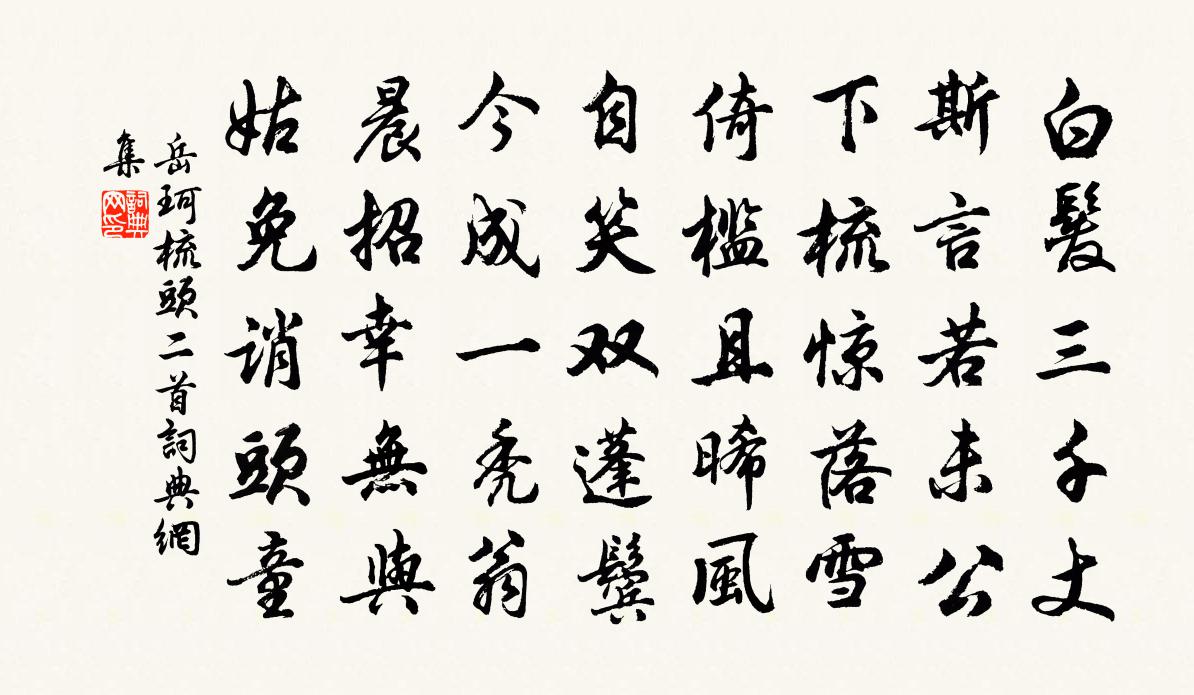 白髮三千丈
斯言若未公
下梳惊落雪
倚檻且晞風
自笑双蓬鬓
今成一秃翁
晨招幸無與
姑免誚頭童
岳珂梳頭二首詞典網
集
詞典
网印